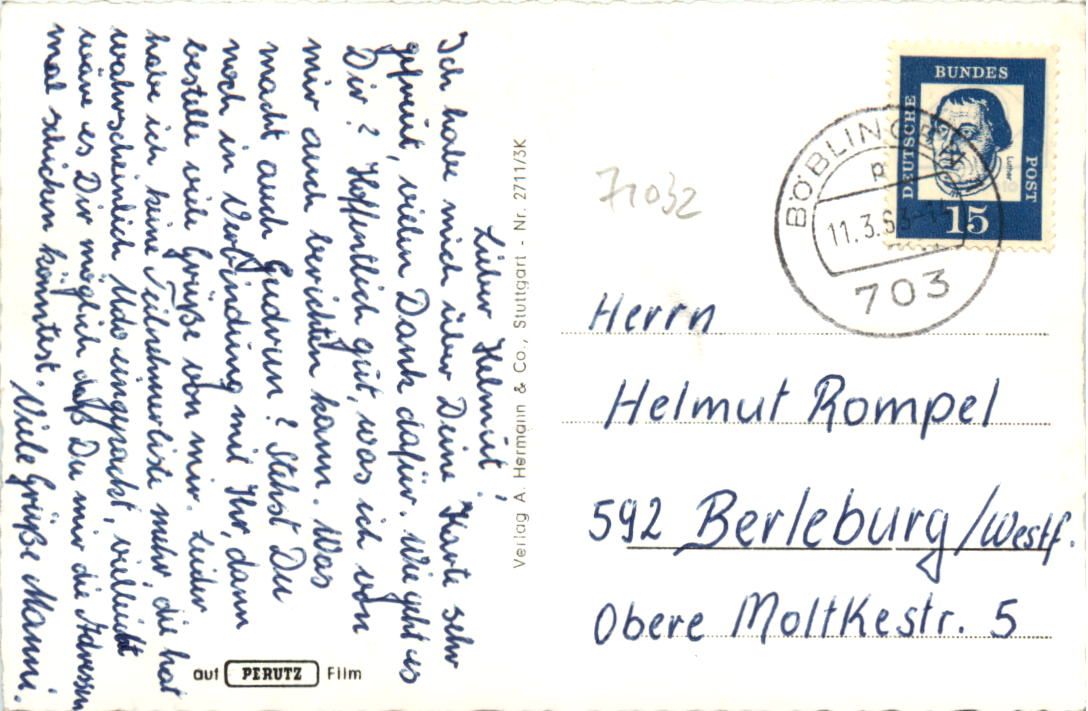 Lieber Helmut!
Ich habe mich über Deine Karte sehr
gefreut, vielen Dank dafür. Wie geht es
Dir? Hoffentlich gut, was ich von
mir auch berichten kann. Was
macht auch Gudrun? Stehst Du
noch in Verbindung mit Ihr, dann
bestelle viele Grüße von mir. Leider
habe ich keine Teilnehmerliste mehr, die hat
wahrscheinlich Udo eingepackt, vielleicht
wäre es Dir möglich daß Du mir die Adressen
mal schicken könntest.
Viele Grüße Manni.
Verlag A. Hermann & Co., Stuttgart - Nr. 2711/3K
auf PERUTZ Film
71032
DEUTSCHE
BUNDES
POST
Luther
15
BÖBLINGEN
11.3.63-15
703
Herrn
Helmut Rompel
592 Berleburg/Westf.
Obere Moltkestr. 5